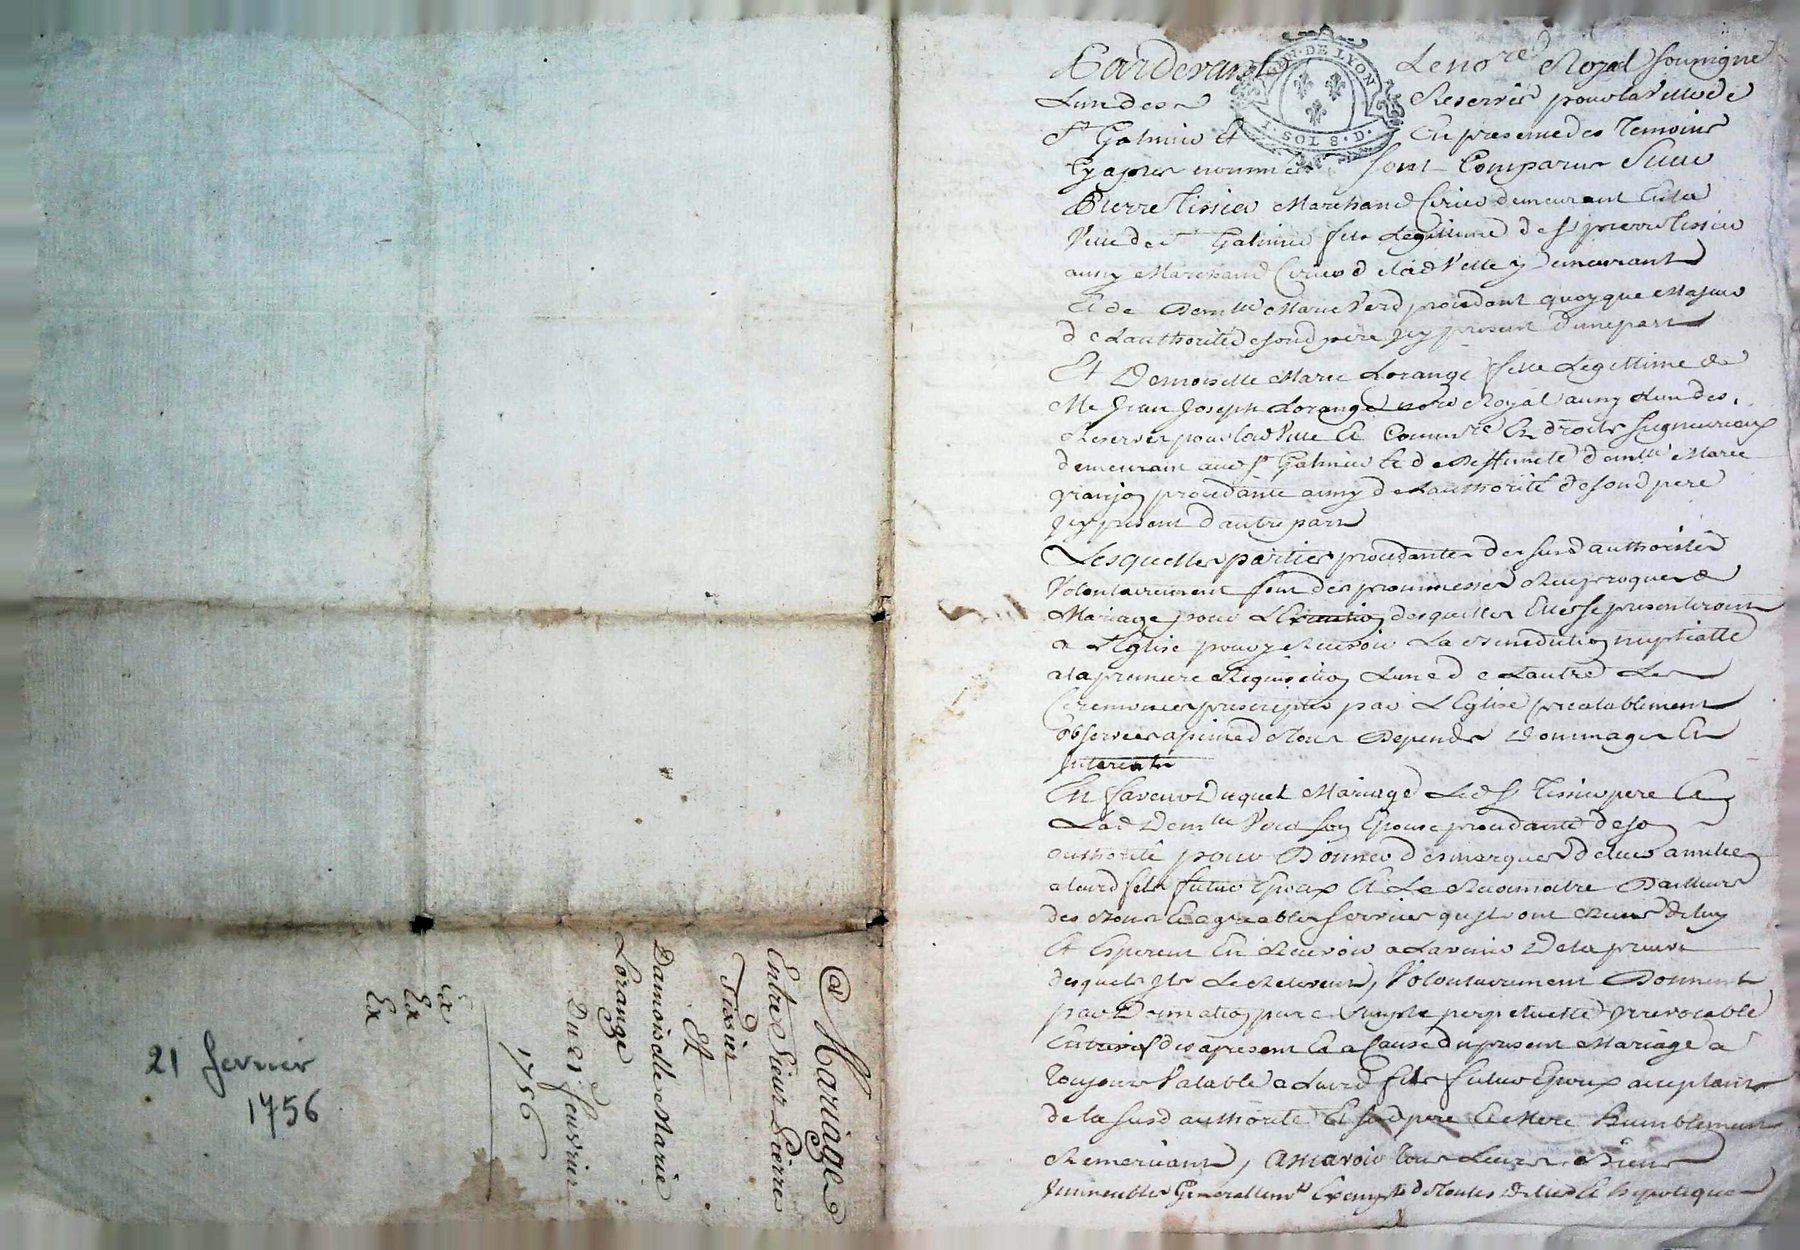 @ Mariage
Entre Sieur Pierre
Tissier
Et
Damoiselle Marie
Lorange
Du 21 feuvrier
1756
Ex
Ex
21 fevrier
1756
GEN. DE LYON
1. SOL 8. D.
Pardevant Le nore Royal soussigné
Lun des Reservés pour la Ville de
St Galmier et En presence des Temoins
Cy apres nommés sont Comparus Sieur
Pierre Tissier Marchand Cirier demeurant En la
Ville de St Galmier fils Legitime de Sr pierre Tissier
aussy Marchand Cirier de lad Ville y Demeurant
Et de Demlle Marie Verd procedant quoyque Majeur
de Lauthorité de sond pere icy present Dune part
Et Demoiselle Marie Lorange fille Legittime de
Me Jean Joseph Lorange nore Royal aussy Lun des
Reservés pour lad Ville Et Commre En droits Seigneuriaux
demeurant aud St Galmier Et de deffuncte demlle Marie
granjon procedante aussy de Lauthorité de sond pere
icy present dautre part
Lesquelles parties procedantes des susd authorités
Volontairement font des prommesses Reciproques de
Mariage pour LExecution desquelles Elles se presenteront
a LEglise pour y Recevoir La Benediction nuptialle
a la premiere Requisition Lune de Lautre Les
Ceremonies prescriptes par LEglise prealablement
observées a peine de Tous Depends Dommages Et
Interests
En faveur Duquel Mariage Led Sr Tissier pere Et
Lad Demlle Verd son Epouse procedante de son
authorité pour Donner des marques de leur amitié
a leurd fils futur Epoux Et Le Reconnoitre Dailleurs
des bons Et agreables services quils ont Reçus de luy
Et Esperent En Recevoir a Lavenir De la preuve
desquels Ils Le Relevent, Volontairement Donnent
par Donation pure Simple perpetuelle Irrevocable
Entrevifs des a present Et a Cause du present Mariage a
Toujours Valable a Leurd fils futur Epoux acceptant
de la susd authorité Et sesd pere Et Mere Humblement
Remerciant, Assavoir Tous Leurs Biens
Immeubles Generallemt Exempts de Toutes Dettes Et hypoteques